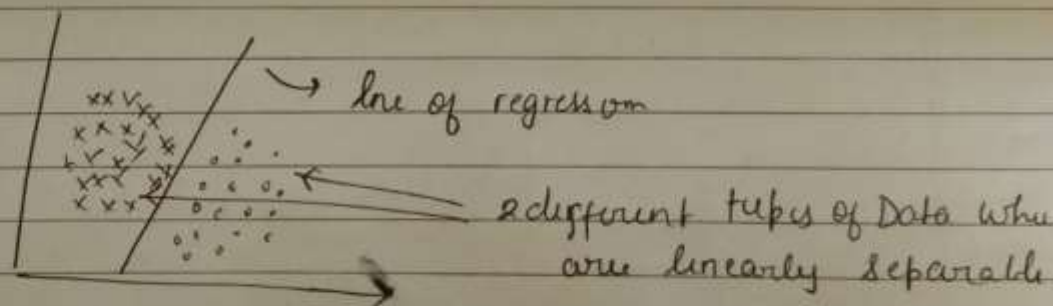 line of regression
2 different types of Data
are linearly separable